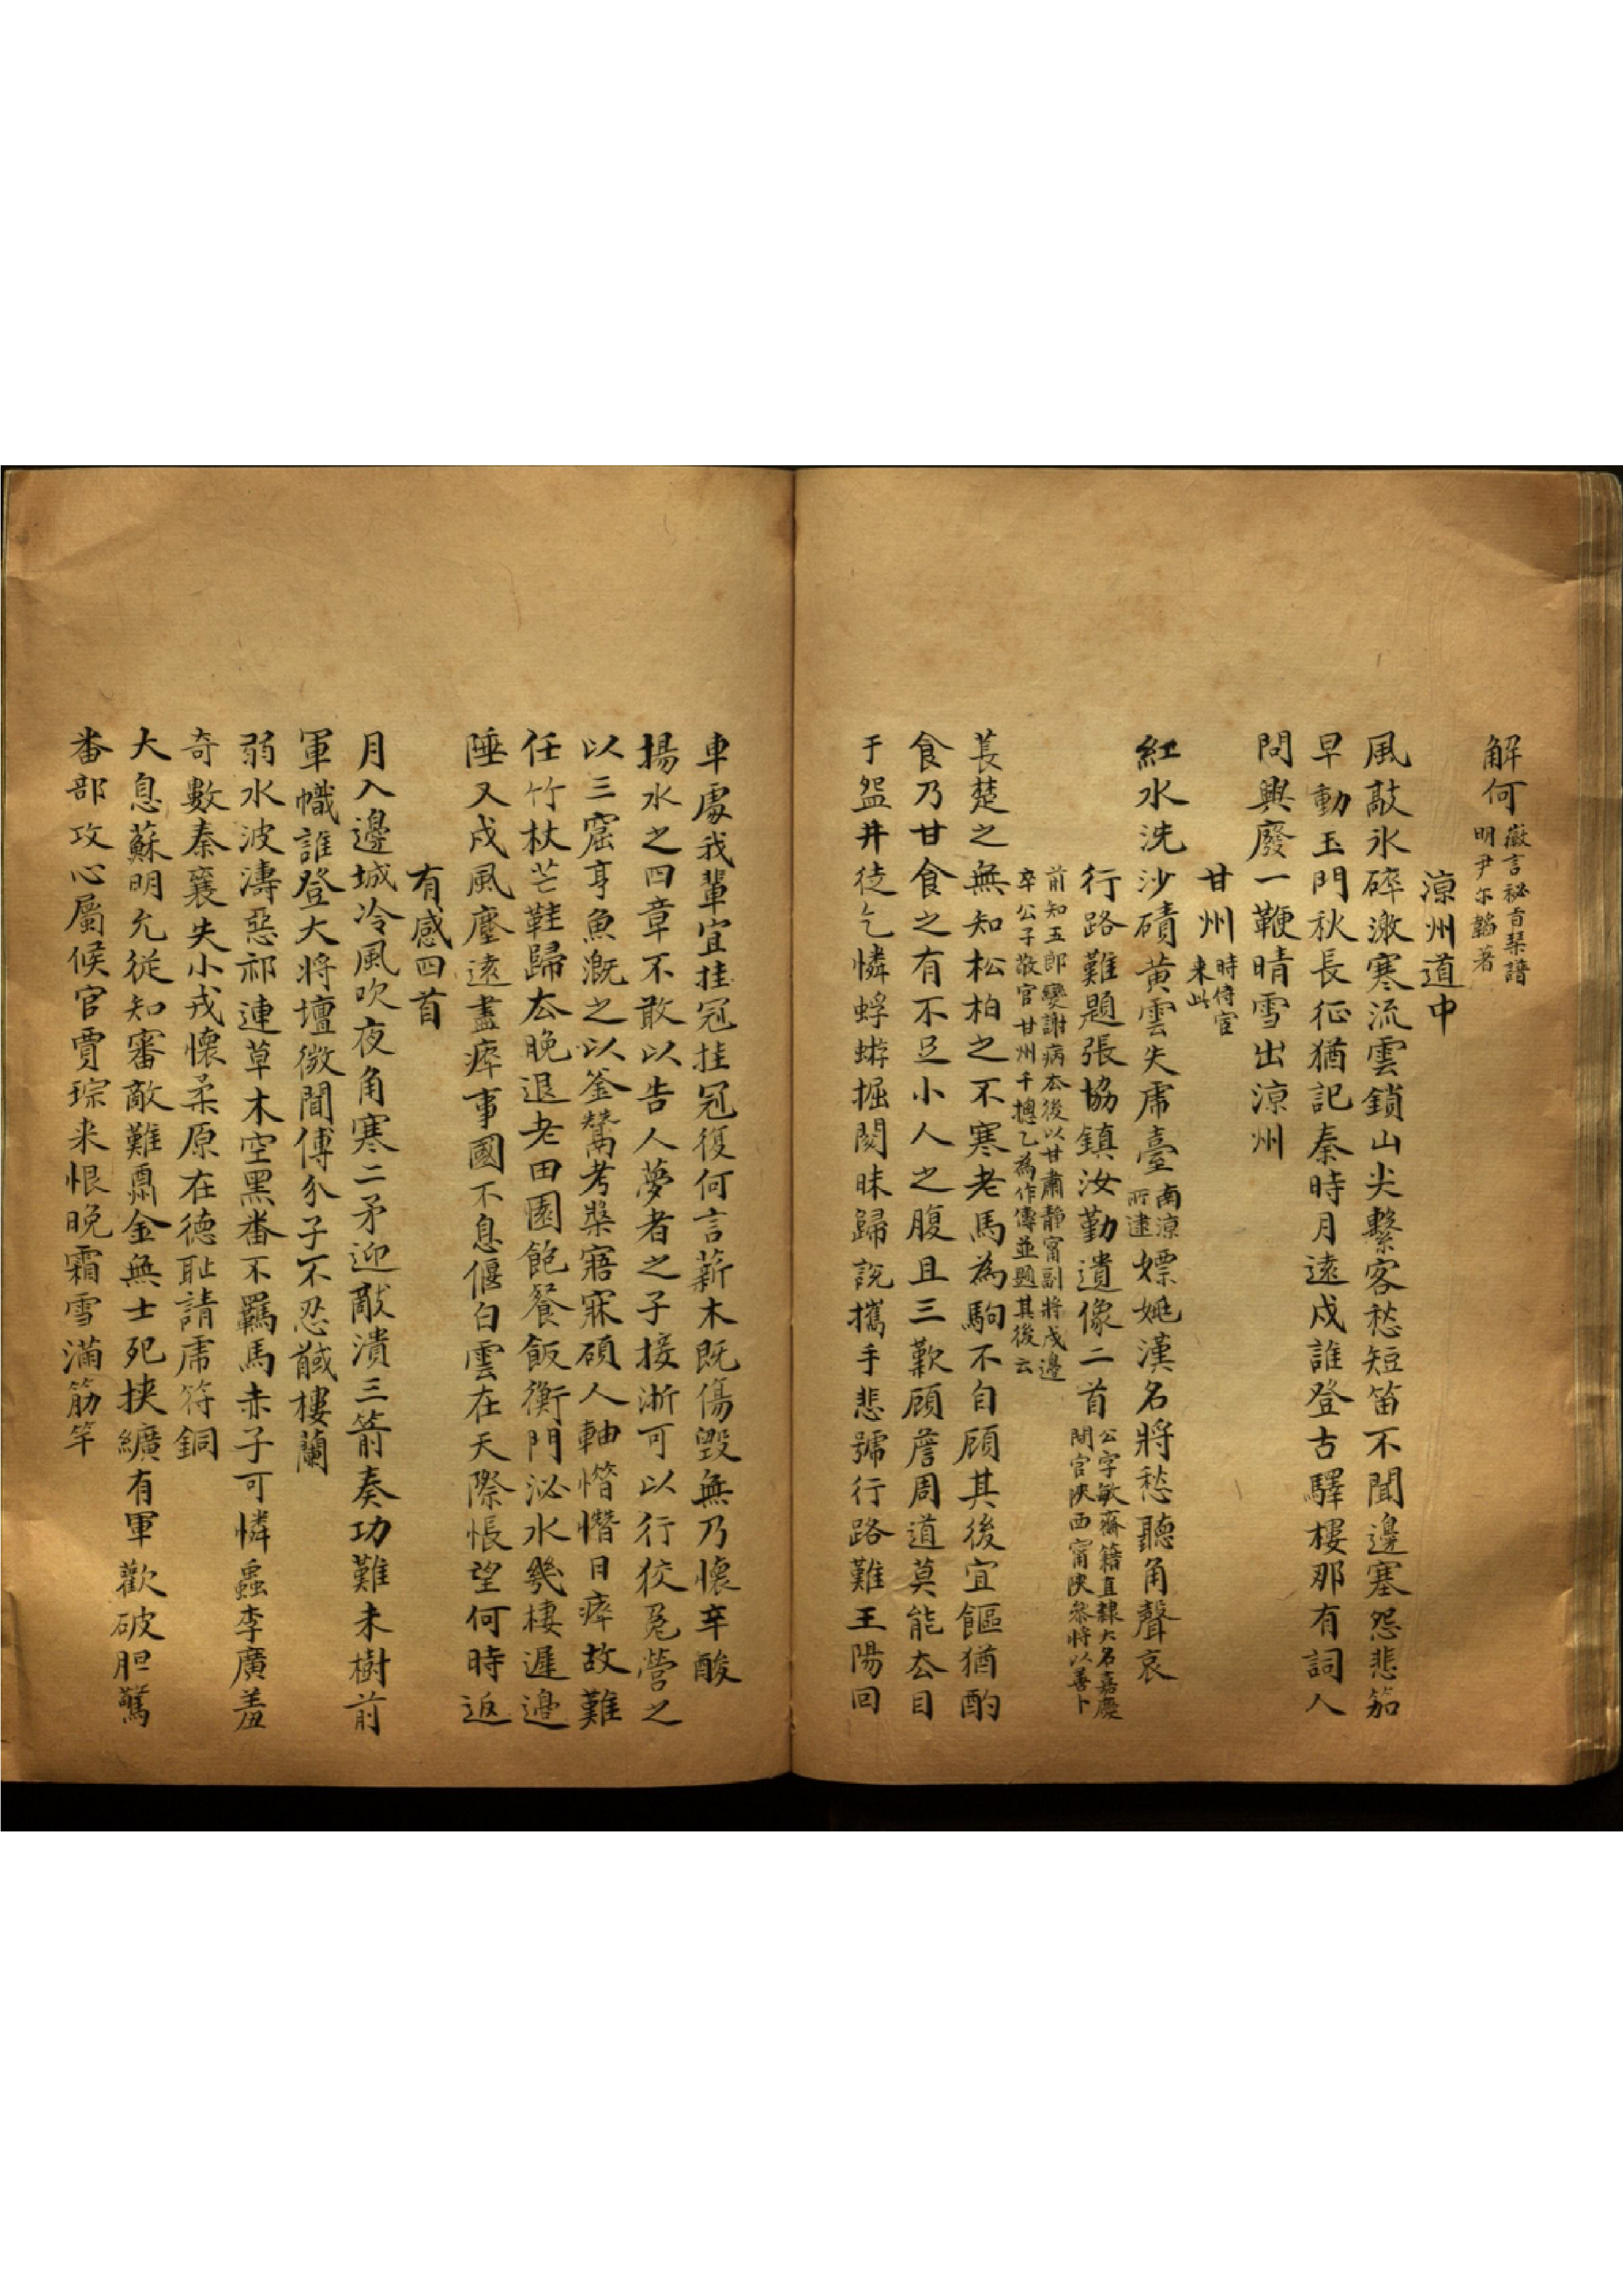 解何徽言祕旨琴譜明尹尔韜著
涼州道中
風敲氷碎漱寒流雲鎖山尖繫客愁短笛不聞邊塞怨悲笳
早動玉門秋長征猶記秦時月遠戍誰登古驛樓那有詞人
問興廢一鞭晴雪出涼州
甘州時侍宦来此
紅水洗沙磧黃雲失虎臺南涼所建嫖姚漢名將愁聽角聲哀
行路難題張協鎮汝勤遺像二首公字敏齋籍直隸大名嘉慶間官陝西甯陝叅將以善卜
前知五郎變謝病厺後以甘肅靜甯副將戍邊
卒公子敬官甘州千摠乙為作傳並題其後云
萇楚之無知松柏之不寒老馬為駒不自顧其後宜饇猶酌
食乃甘食之有不足小人之腹且三歎顧詹周道莫能厺目
于盌井徒乞憐蜉蝣掘閱昧歸說攜手悲號行路難王陽回
車處我輩宜挂冠挂冠復何言薪木既傷毀無乃懷辛酸
揚水之四章不敢以告人夢者之子接淅可以行狡兔營之
以三窟亨魚溉之以釜鬵考槃寤寐碩人軸憯憯日瘁故難
任竹杖芒鞋歸厺晚退老田園飽餐飯衡門泌水幾棲遲邊
陲又戍風塵遠盡瘁事國不息偃白雲在天際悵望何時返
有感四首
月入邊城冷風吹夜角寒二矛迎敵潰三箭奏功難未樹前
軍幟誰登大將壇微聞傅介子不忍馘樓蘭
弱水波濤惡祁連草木空黑番不羈馬赤子可憐蟲李廣羞
奇數秦襄失小戎懷柔原在德耻請虎符銅
大息蘇明允從知審敵難鬻金無士死挾纊有軍歡破胆驚
番部攻心屬候官賈琮来恨晚霜雪滿筋竿